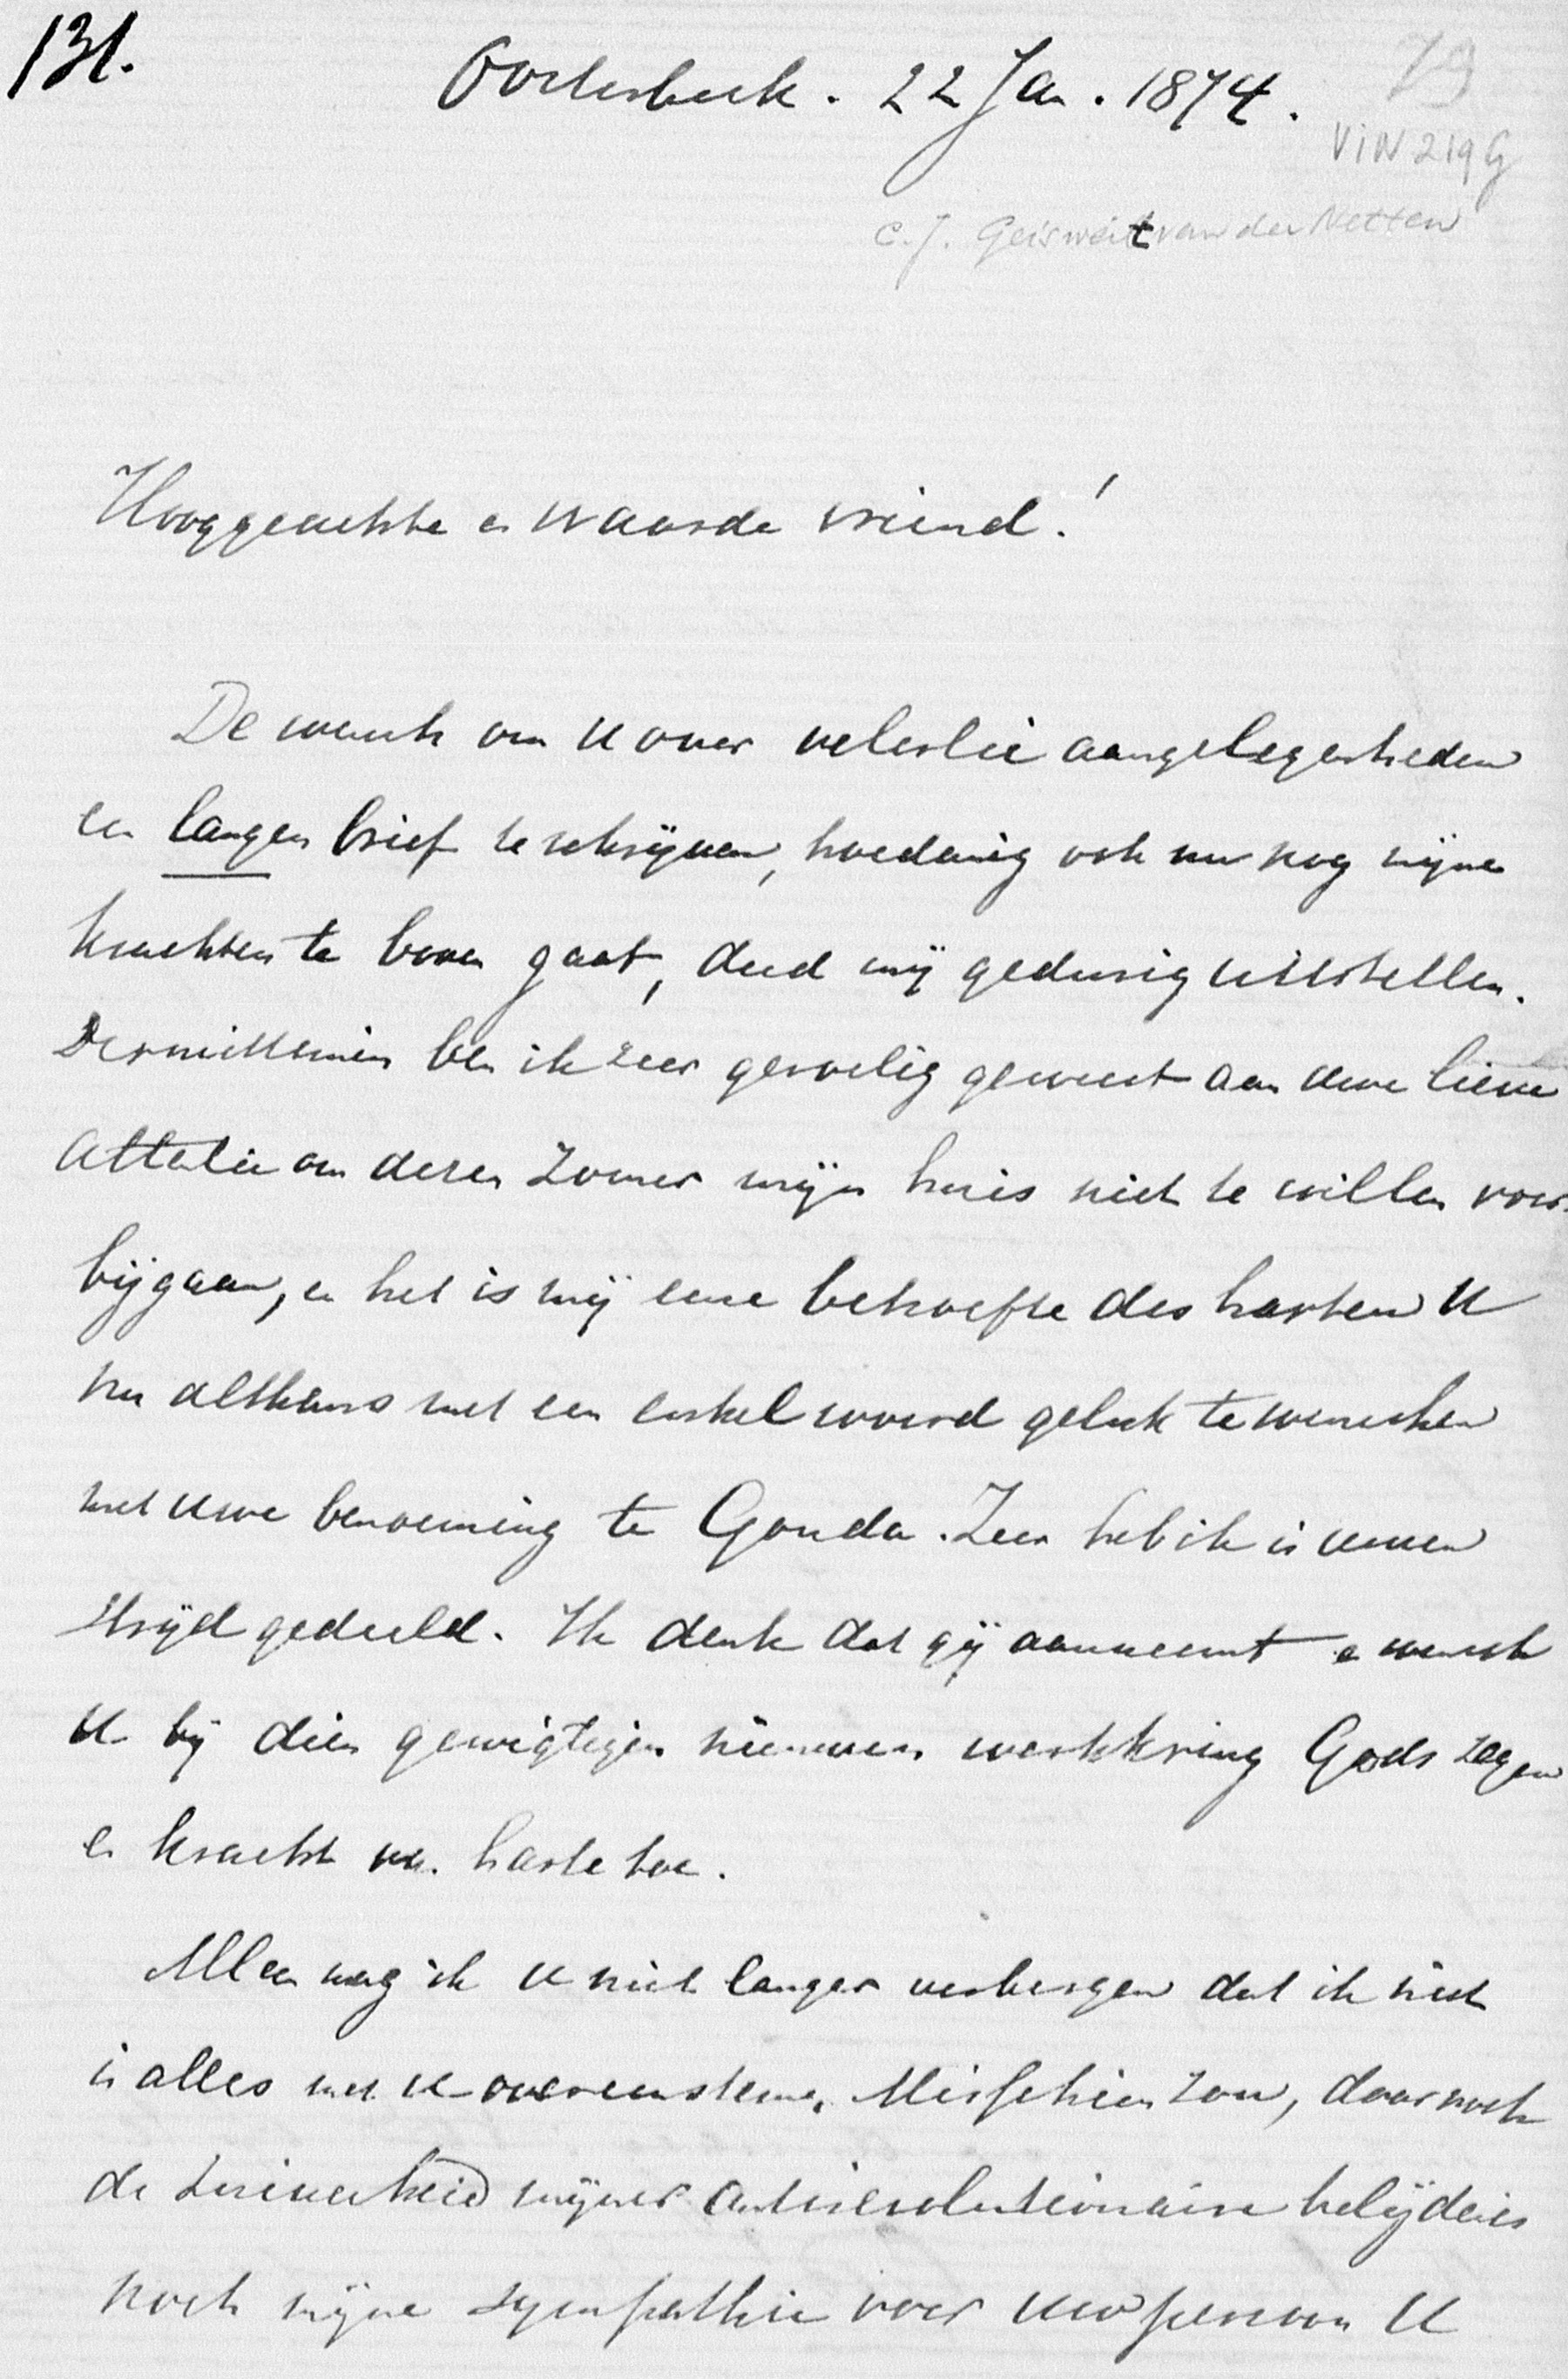 131.
Oosterbeek. 22 Jan. 1874.
79
VIN 219 G
C.J. Geisweit van der Netten
Hooggeachte en waarde vriend!
De wensch om U over velerlei aangelegenheden
een langen brief te schrijven, hoedanig ook nu nog mijne
krachten te boven gaat, deed mij gedurig uitstellen.
Dermitteneer ben ik zeer gevoelig geweest aan uwe lieve
attentie om dezen Zomer mijn huis niet te willen voor-
bijgaan, en het is mij eene behoefte des harten U
nu althans met een enkel woord geluk te wenschen
met uwe benoeming te Gouda. Zeer heb ik in uwen
strijd gedeeld. Ik denk dat gij aanneemt en wensch
U bij dien gewigtigen nieuwen werkkring Gods zegen
en kracht van harte toe.
Alleen mag ik U niet langer verbergen dat ik niet
in alles met U overeenstem. Misschien zou, daar noch
de zuiverheid mijner antirevolutionaire belijdenis
noch mijne sympathie voor uw persoon U